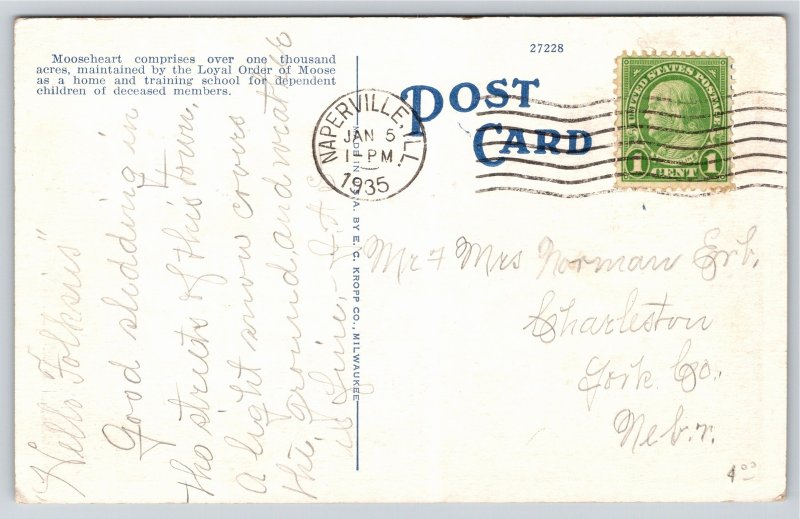 Mooseheart comprises over one thousand
acres, maintained by the Loyal Order of Moose
as a home and training school for dependent
children of deceased members.
27228
POST
CARD
NAPERVILLE, ILL.
JAN 5
1-PM
1935
UNITED STATES POSTAGE
1 CENT 1
MADE IN U.S.A. BY E. C. KROPP CO., MILWAUKEE
"Hello Folksies"
Good sledding in
the streets of this town,
a light snow covers
the ground, and weather
is fine.
Mr & Mrs Norman Erb.
Charleston
York Co.,
Nebr.
4⁰⁰